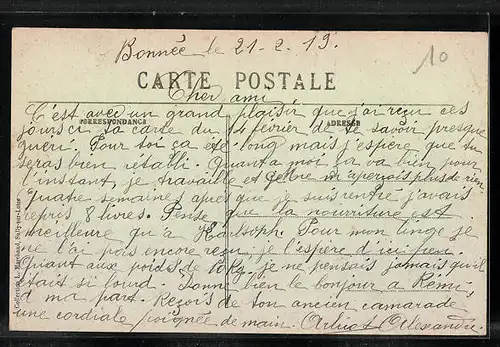 Bonnée le 21-2-19.
10
CARTE POSTALE
Cher ami
CORRESPONDANCE
ADRESSE
C'est avec un grand plaisir que j'ai reçu ces
jours ci ta carte du 14 février de te savoir presque
guéri. Pour toi ça été long mais j'espère que tu
seras bien rétabli. Quant a moi ça va bien pour
l'instant, je travaille et m'aperçois plus de rien
Quatre semaine, apres que je suis rentré j'avais
repris 8 livres. Pense que la nourriture est
meilleure qu'a Pour mon linge je
ne l'ai pois encore reçu, je l'espère d'ici peu.
Quant aux poids de 10 Kg. je ne pensais jamais qu'il
était si lourd. Donne bien le bonjour a Rémi,
d ma part. Reçois de ton ancien camarade
une cordiale poignée de main. Alexandre.
Collection L. Marchand, Sully-sur-Loire